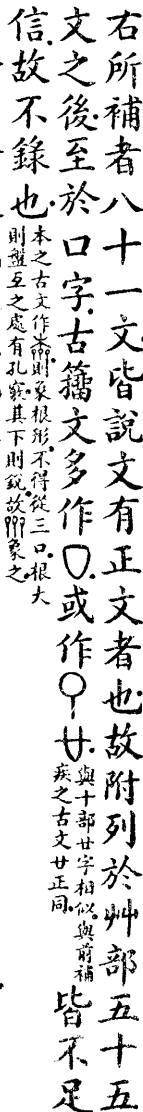 右所補者八十一文皆說文有正文者也故附列於艸部五十五
文之後至於口字古籀文多作㔾或作廿與十部廿字相似與前補疾之古文廿正同皆不足
信故不錄也本之古文作則象根形不得從三口根大則盤互之處有孔竅其下則銳故象之